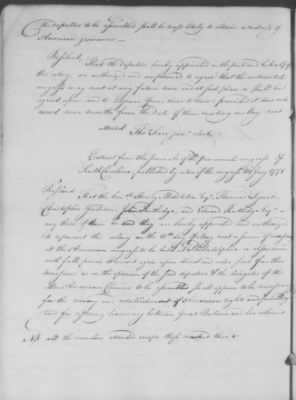 the deputies to be appointed shall be most likely to obtain a redress of
American grievances —
Resolved,
That the deputies hereby appointed on the part and behalf of
this colony, are authorized and empowered to agree that the continental
congress may meet at any future time and at such place as shall be
agreed upon and to adjourn from time to time provided it does not
exceed twelve months from the date of their meeting
Attest.
Extract from the journals of the provincial congress of
South Carolina published by order of the congress
Resolved
That the hon. Henry Middleton Esq. Thomas Lynch,
Christopher Gadsden, John Rutledge, and Edward Rutledge Esq. or
any three of them be and they are hereby appointed and authorized
to represent this colony on the 10th May next
at the American congress to be held at Philadelphia or elsewhere
with full power to concert agree upon direct and order such further
measures as in the opinion of the said deputies & the delegates of the
other American Colonies to be assembled shall appear to be necessary
for the recovery and establishment of American rights and
and for restoring harmony between Great Britain and her colonies
NB All the members attended except those marked thus +